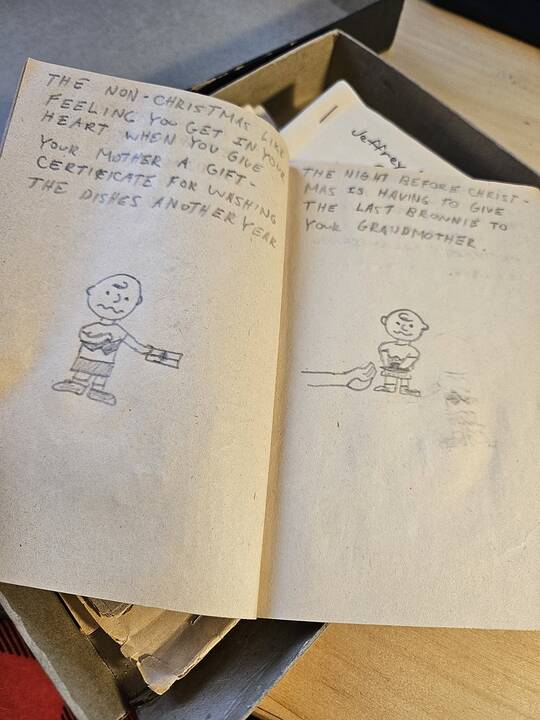 THE NON-CHRISTMAS LIKE
FEELING YOU GET IN YOUR
HEART WHEN YOU GIVE
YOUR MOTHER A GIFT-
CERTIFICATE FOR WASHING
THE DISHES ANOTHER YEAR
Jeffrey
THE NIGHT BEFORE CHRIST-
MAS IS HAVING TO GIVE
THE LAST BROWNIE TO
YOUR GRANDMOTHER.